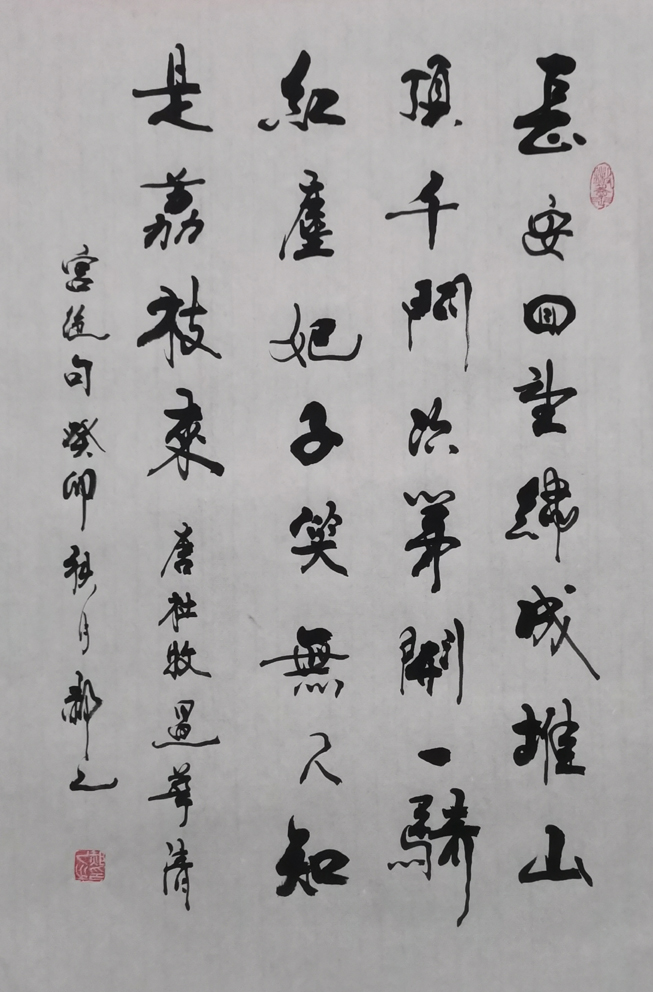 長安回望繡成堆山
頂千門次第開一騎
紅塵妃子笑無人知
是荔枝來 唐杜牧過華清
宮絕句癸卯秋月